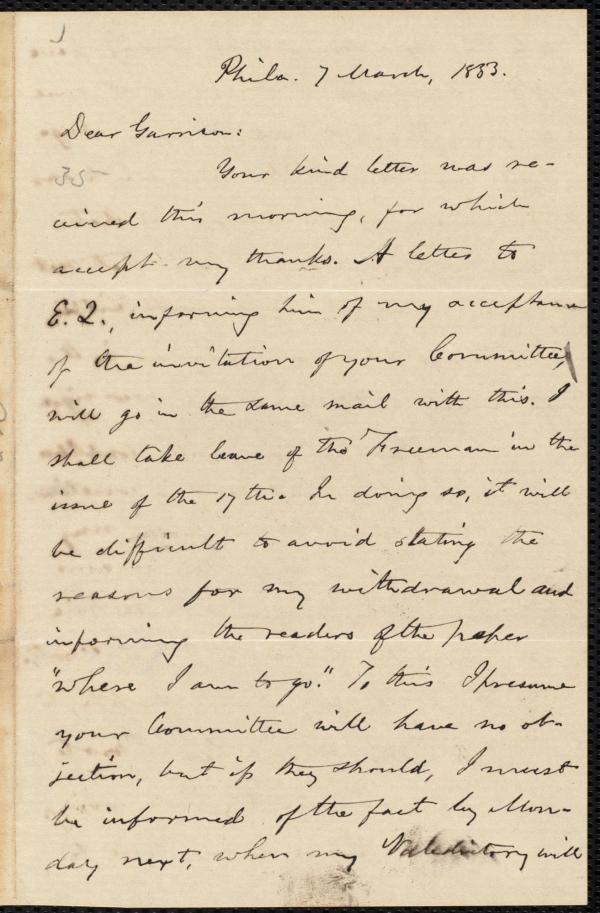 Phila. 7 March, 1853.
Dear Garrison:
35
Your kind letter was re-
ceived this morning, for which
accept my thanks. A letter to
E. Q., informing him of my acceptance
of the invitation of your Committee,
will go in the same mail with this. I
shall take leave of the Freeman in the
issue of the 17th. In doing so, it will
be difficult to avoid stating the
reasons for my withdrawal and
informing the readers of the paper
"where I am to go." To this I presume
your Committee will have no ob-
jection, but if they should, I must
be informed of the fact by Mon-
day next, when my Valedictory will